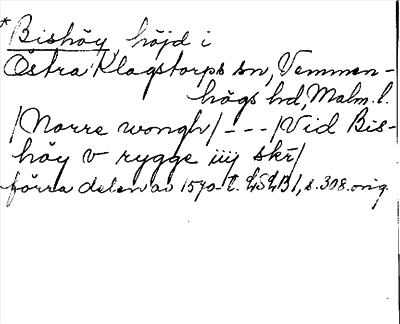 *Bishöy, höjd i
Östra Klagstorps sn, Vemmen-
högs hd, Malm. l.
/Norre wongh/ - - - /Vid Bis-
höy v rygge iiij skr/
förra delen av 1570 s. 308. orig.